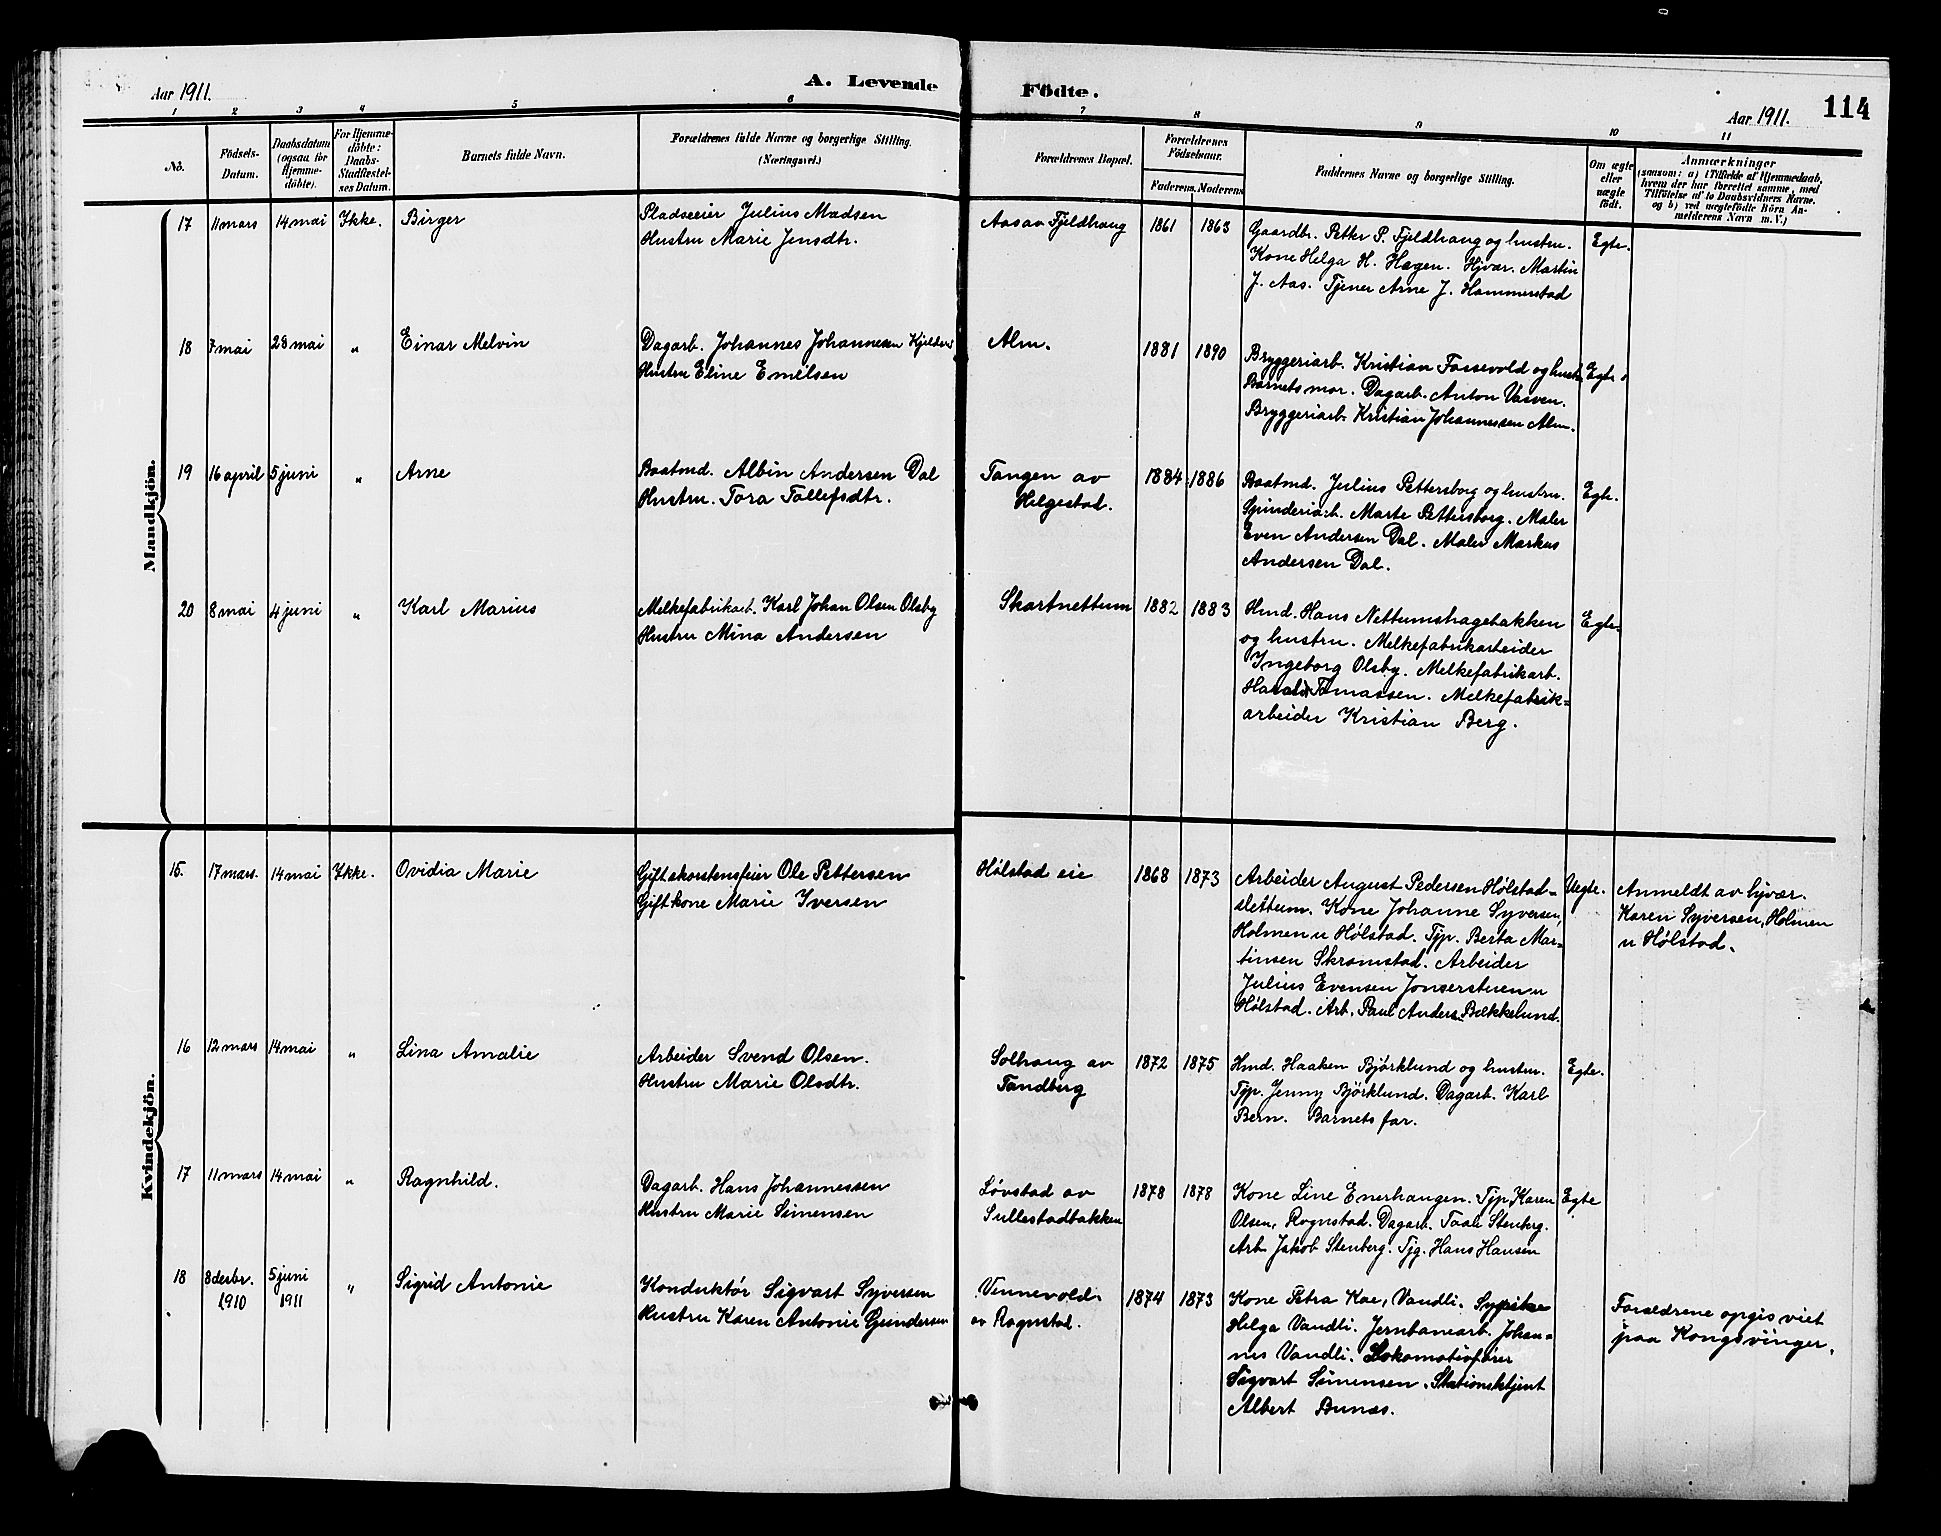 Aar 1911.
A. Levende
Födte.
Aar 1911.
114
1 2 3 4 5 6 7 8 9 10 11
No.
Födsels-
Datum.
Daabsdatum
(ogsaa for
Hjemme-
döbte).
For Hjemme-
döbte:
Daabs-
Stadfæstel-
ses Datum.
Barnets fulde Navn.
Forældrenes fulde Navne og borgerlige Stilling.
(Næringsvei.)
Forældrenes Bopæl.
Forældrenes
Födselsaar.
Faderens. Moderens.
Faddernes Navne og borgerlige Stilling.
Om ægte
eller
uægte
födt.
Anmærkninger
(saasom: a) i Tilfælde af Hjemmedaab,
hvem der har forrettet samme, med
Tilföielse af to Daabsvidners Navne.
og b) ved uegtefödte Börn An-
melderens Navn m. V.)
Mandkjön.
17 11 mars 14 mai Ikke. Birger
Pladseeier Julius Madsen
Hustru Marie Jensdtr.
Aas av Fjeldhaug 1861 1863
Gaardbr. Petter P. Fjeldhaug og hustru.
Kone Helga H. Hagen. Hjvær. Martin
J. Aas. Tjener Arne J. Hammerstad
Egte.
18 7 mai 28 mai " Einar Melvin
Dagarb. Johannes Johannesen
Hustru Eline Emilsen
Alm. 1881 1890
Bryggeriarb. Kristian Fossevold og hustru
Barnets mor. Dagarb. Anton Vasven.
Bryggeriarb. Kristian Johannessen Alm.
Egte.
19 16 april 5 juni " Arne
Baatmd. Albin Andersen Dal
Hustru. Tora Tollefsdtr.
Tangen av
Helgestad.
1884 1886
Baatmd. Julius Pettersborg og hustru.
Spinderiarb. Marte Pettersborg. Maler
Even Andersen Dal. Maler Markus
Andersen Dal.
Egte.
20 8 mai 4 juni " Karl Marius
Melkefabrikarb. Karl Johan Olsen Olsby
Hustru Mina Andersen
Skartnettum 1882 1883
Hmd. Hans Nettumshagebakken
og hustru. Melkefabrikarbeider
Ingeborg Olsby. Melkefabrikarb.
Harald Tomassen. Melkefabrik=
arbeider Kristian Berg.
Egte.
Kvindekjön.
15. 17 mars. 14 mai Ikke. Ovidia Marie
Gift skorstensfeier Ole Pettersen
Gift kone Marie Iversen
Hølstad eie 1868 1873
Arbeider August Pedersen Hølstad=
slettum. Kone Johanne Syversen,
Holmen u Hølstad. Tjp. Berta Mar=
tinsen Skramstad. Arbeider
Julius Evensen Jonserstuen u
Hølstad. Arb. Paul Anders. Bækkelund.
Uegte.
Anmeldt av hjvær.
Karen Syversen, Holmen
u Hølstad.
16 12 mars 14 mai " Lina Amalie
Arbeider Svend Olsen.
Hustru Marie Olsdtr.
Solhaug av
Tandberg
1872 1875
Hmd. Haaken Björklund og hustru.
Tjp. Jenny Björklund. Dagarb. Karl
Bern. Barnets far.
Egte.
17 11 mars 14 mai " Ragnhild.
Dagarb. Hans Johannessen
Hustru Marie Simensen
Løvstad av
Sullestadbakken
1878 1878
Kone Line Enerhaugen. Tjp. Karen
Olsen, Rognstad. Dagarb. Stenberg.
Arb. Jakob Stenberg. Tjg. Hans Hansen
Egte
18 8 desbr. 1910 5 juni 1911 " Sigrid Antonie
Konduktør Sigvart Syversen
Hustru Karen Antonie Gundersen
Vennevold.
av Rognstad.
1874 1873
Kone Petra Kae, Vandli. Sypike
Helga Vandli. Jernbanearb. Johan=
nes Vandli. Lokomotivfører
Sigvart Simensen. Stationsbetjent
Albert Bunæs.
Forældrene opgis viet
paa Kongsvinger.